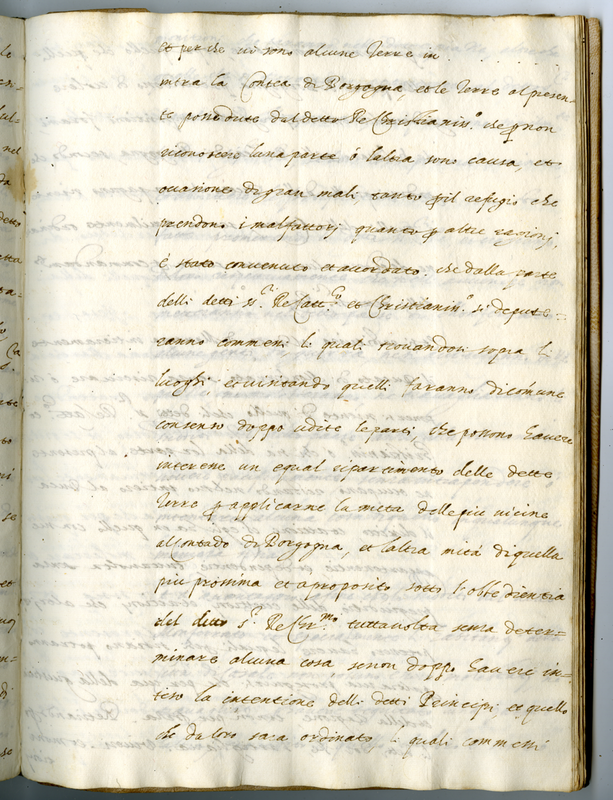 et perche ui sono alcune Terre in
intra la Contea di Borgogna, et le Terre al presen-
te possedute dal detto Re Christianiss.º che p non
riconoscere luna parte ó laltra sono causa, et
occasione di gran mali, tanto p il refugio che
prendono i malfattorj quanto p altre ragionj,
é stato conuenuto et accordato, che dalla parte
delli detti ss.ri Re Catt.co et Christianiss.º si depute-
ranno commessi li quali trouandosi sopra li
luoghi, et uisitando quelli faranno, di comune
consenso doppo udite le parti, che possono hauere
interesse un egual ripartimento delle dette
Terre p applicarne la meta delle piu uicine
al Contado di Borgogna, et laltra mitá di quella
piu prossima et a proposito sotto l'obbedientia
del ditto s.r Re Chr.mo tuttauolta senza deter-
minare alcuna cosa, se non doppo hauere in-
teso la intentione delli detti Principi, et quello
che da loro sara ordinato, i quali commessi